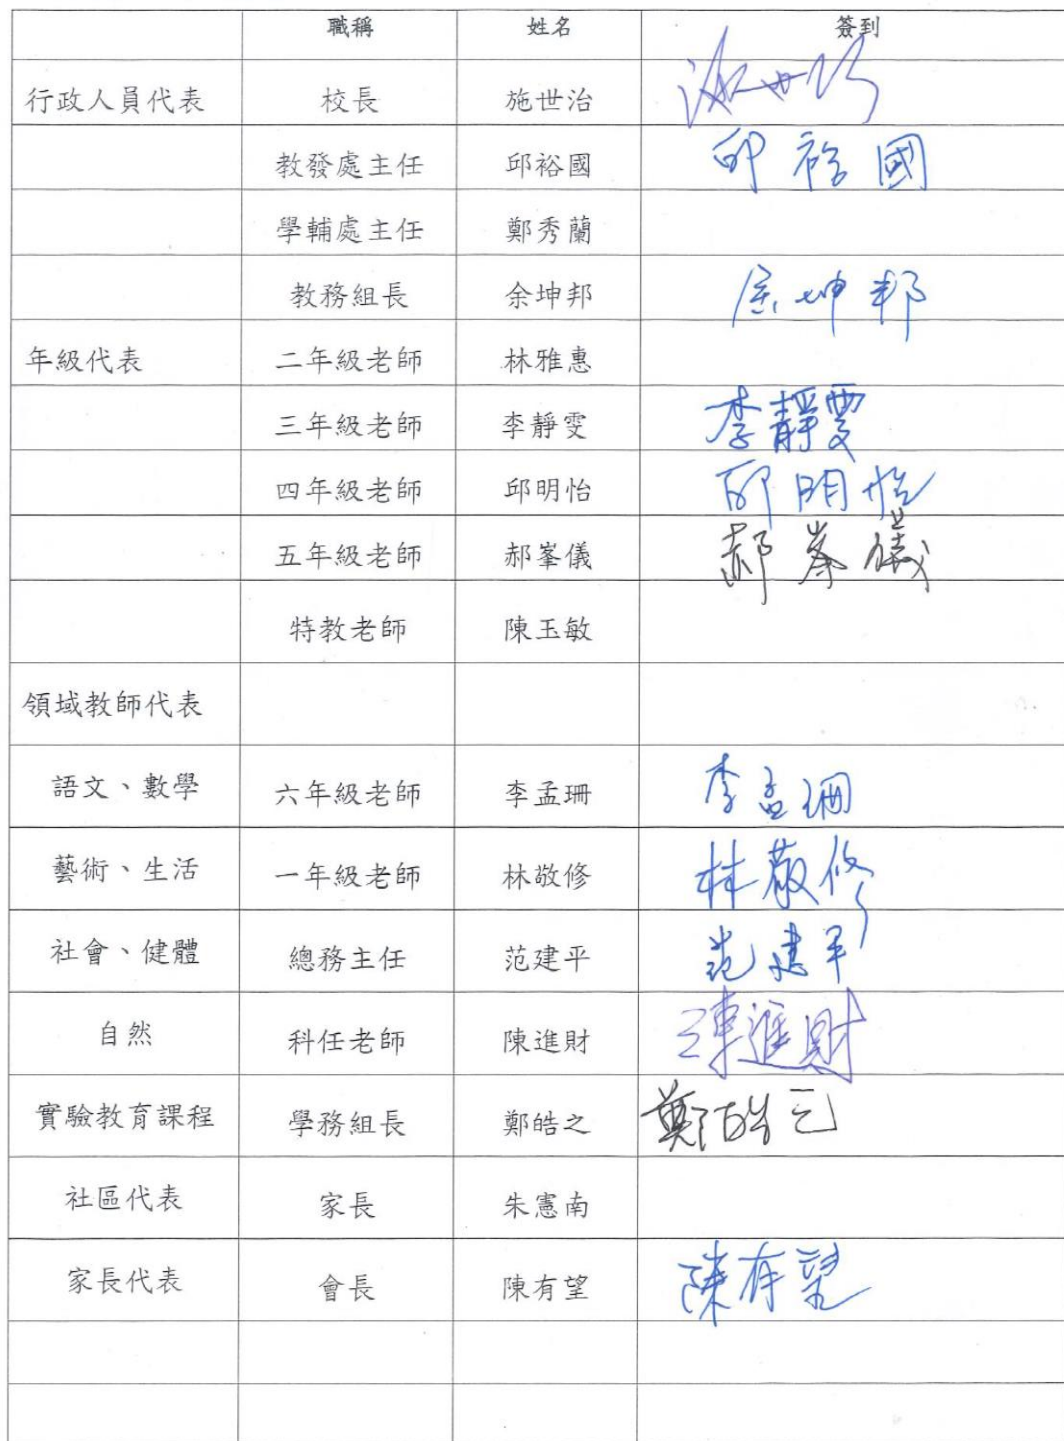 職稱 姓名 簽到
行政人員代表 校長 施世治 施世治
教發處主任 邱裕國 邱裕國
學輔處主任 鄭秀蘭
教務組長 余坤邦 余坤邦
年級代表 二年級老師 林雅惠
三年級老師 李靜雯 李靜雯
四年級老師 邱明怡 邱明怡
五年級老師 郝峯儀 郝峯儀
特教老師 陳玉敏
領域教師代表
語文、數學 六年級老師 李孟珊 李孟珊
藝術、生活 一年級老師 林敬修 林敬修
社會、健體 總務主任 范建平 范建平
自然 科任老師 陳進財 陳進財
實驗教育課程 學務組長 鄭皓之 鄭皓之
社區代表 家長 朱憲南
家長代表 會長 陳有望 陳有望